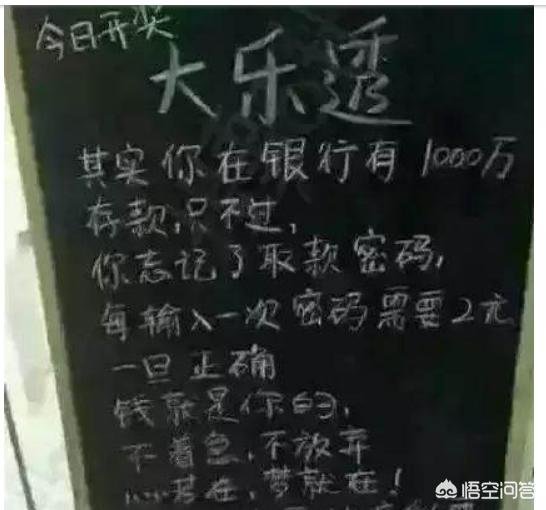 今日开奖
大乐透
其实你在银行有1000万
存款,只不过,
你忘记了取款密码,
每输入一次密码需要2元
一旦正确
钱就是你的,
不着急,不放弃
心若在,梦就在!
悟空问答